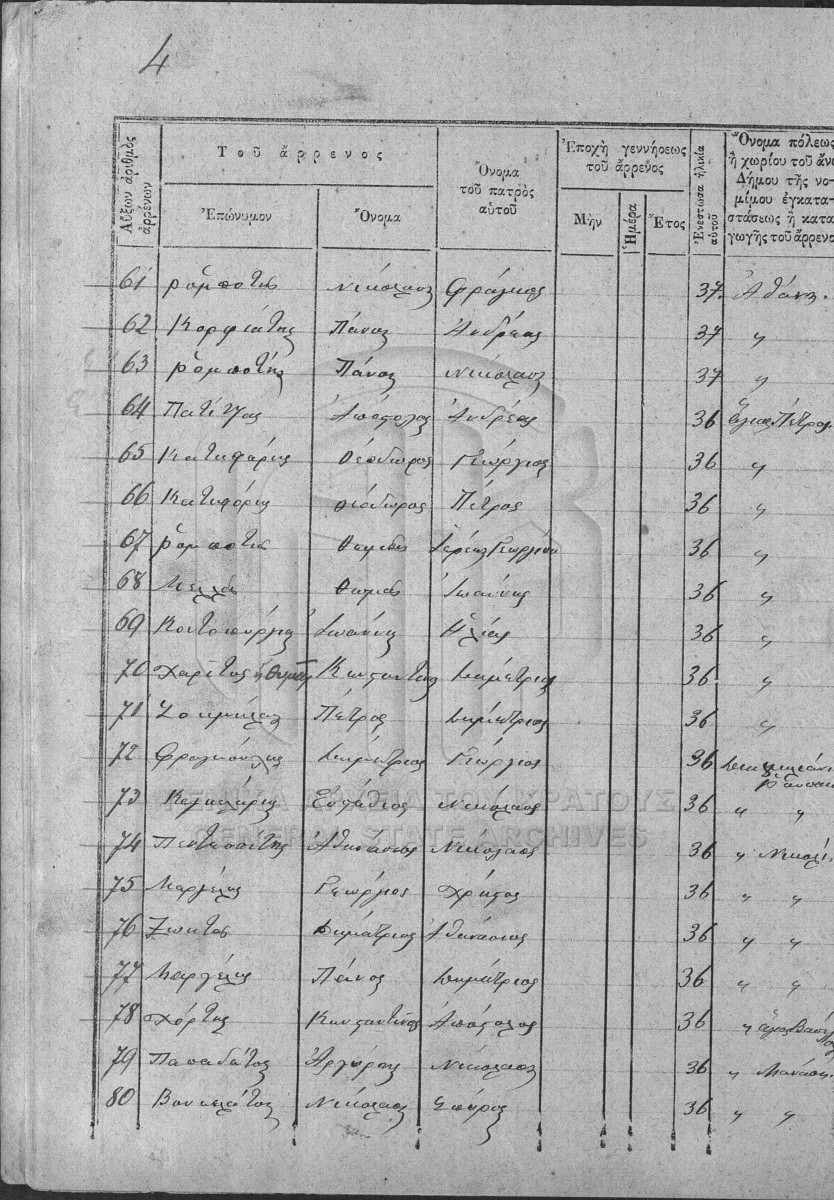 4
Αὔξων ἀριθμὸς ἀρρένων
Τοῦ ἄρρενος
Ἐπώνυμον
Ὄνομα
Ὄνομα τοῦ πατρὸς αὐτοῦ
Ἐποχὴ γεννήσεως τοῦ ἄρρενος
Μὴν
Ἡμέρα
Ἔτος
Ἐνεστῶσα ἡλικία αὐτοῦ
Ὄνομα πόλεως
ἢ χωρίου τοῦ ἄνω
Δήμου τῆς νο-
μίμου ἐγκατα-
στάσεως ἢ κατα-
γωγῆς τοῦ ἄρρενο
61 Ρομποτης Νικόλαος Φράγκος 37
62 Κορφιάτης Πάνος Ἀνδρέας 37 〃
63 Ρομποτής Πάνος Νικόλαος 37 〃
64 Πατίτζας Ἀπόστολος Ἀνδρέας 36 Ἅγιος Πέτρος
65 Κατηφόρης Θεόδωρος Γεώργιος 36 〃
66 Κατηφόρης Θεόδωρος Πέτρος 36 〃
67 Ρομποτης 36 〃
68 Μελλάς Θωμάς Ἰωάννης 36 〃
69 Ἰωάννης Ἠλίας 36 〃
70 Χαρίτος ἢ Κωνσταντῖνος Δημήτριος 36 〃
71 Πέτρος Δημήτριος 36 〃
72 Φραγκούλης Δημήτριος Γεώργιος 36
73 Εὐστάθιος Νικόλαος 36 〃 〃
74 Ἀθανάσιος Νικόλαος 36 〃 Νικολή
75 Μαργέλης Γεώργιος Χρῆστος 36 〃 〃
76 Δημήτριος Ἀθανάσιος 36 〃 〃
77 Μαργέλης Πάνος Δημήτριος 36 〃 〃
78 Χόρτης Κωνσταντῖνος Ἀπόστολος 36 〃
79 Παπαδάτος Ἀργύρης Νικόλαος 36 〃
80 Βουκελάτος Νικόλαος Σπύρος 36 〃 〃
ΓΕΝΙΚΑ ΑΡΧΕΙΑ ΤΟΥ ΚΡΑΤΟΥΣ
GENERAL STATE ARCHIVES